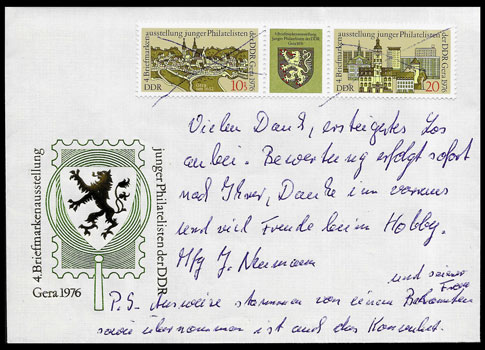 4. Briefmarkenausstellung junger Philatelisten
der DDR Gera 1976
DDR
10+5
4. Briefmarkenausstellung
junger Philatelisten der DDR
Gera 1976
4. Briefmarkenausstellung junger Philatelisten
der DDR Gera 1976
DDR
20
4. Briefmarkenausstellung
junger Philatelisten der DDR
Gera 1976
Vielen Dank, ersteigertes Los
anbei. Bewertung erfolgt sofort
nach Ihrer, Danke im voraus
und viel Freude beim Hobby.
Mfg J. Neumann
und seiner
Frau
P.S. Ausweise stammen von einem Bekannten
sowie übernommen ist auch das Konvolut.